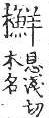 息淺切
木名